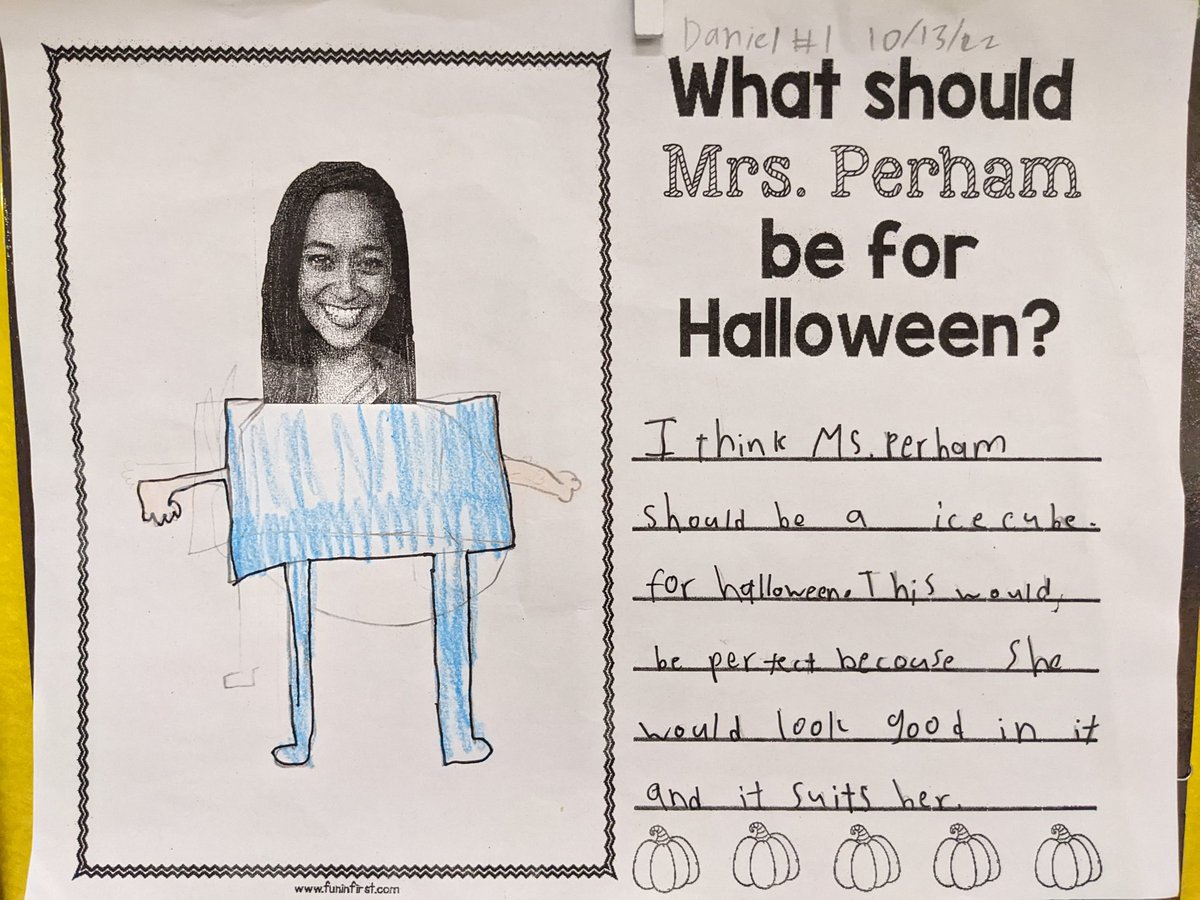 Daniel #1 10/13/22
What should
Mrs. Perham
be for
Halloween?
I think Ms. perham
should be a ice cube.
for halloween. This would,
be pertect becouse She
would look good in it
and it suits her.
www.funinfirst.com